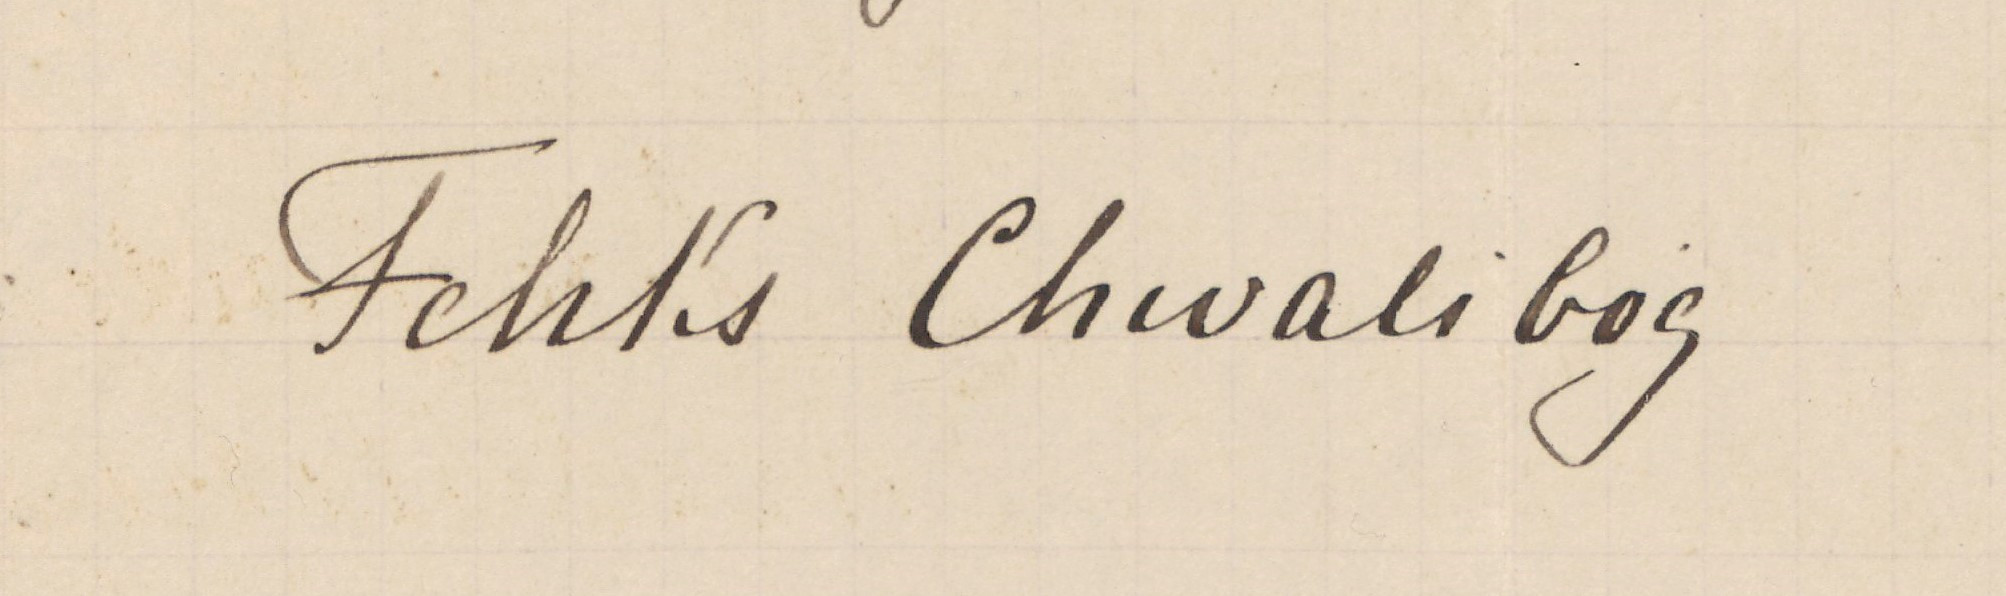 Feliks Chwalibóg